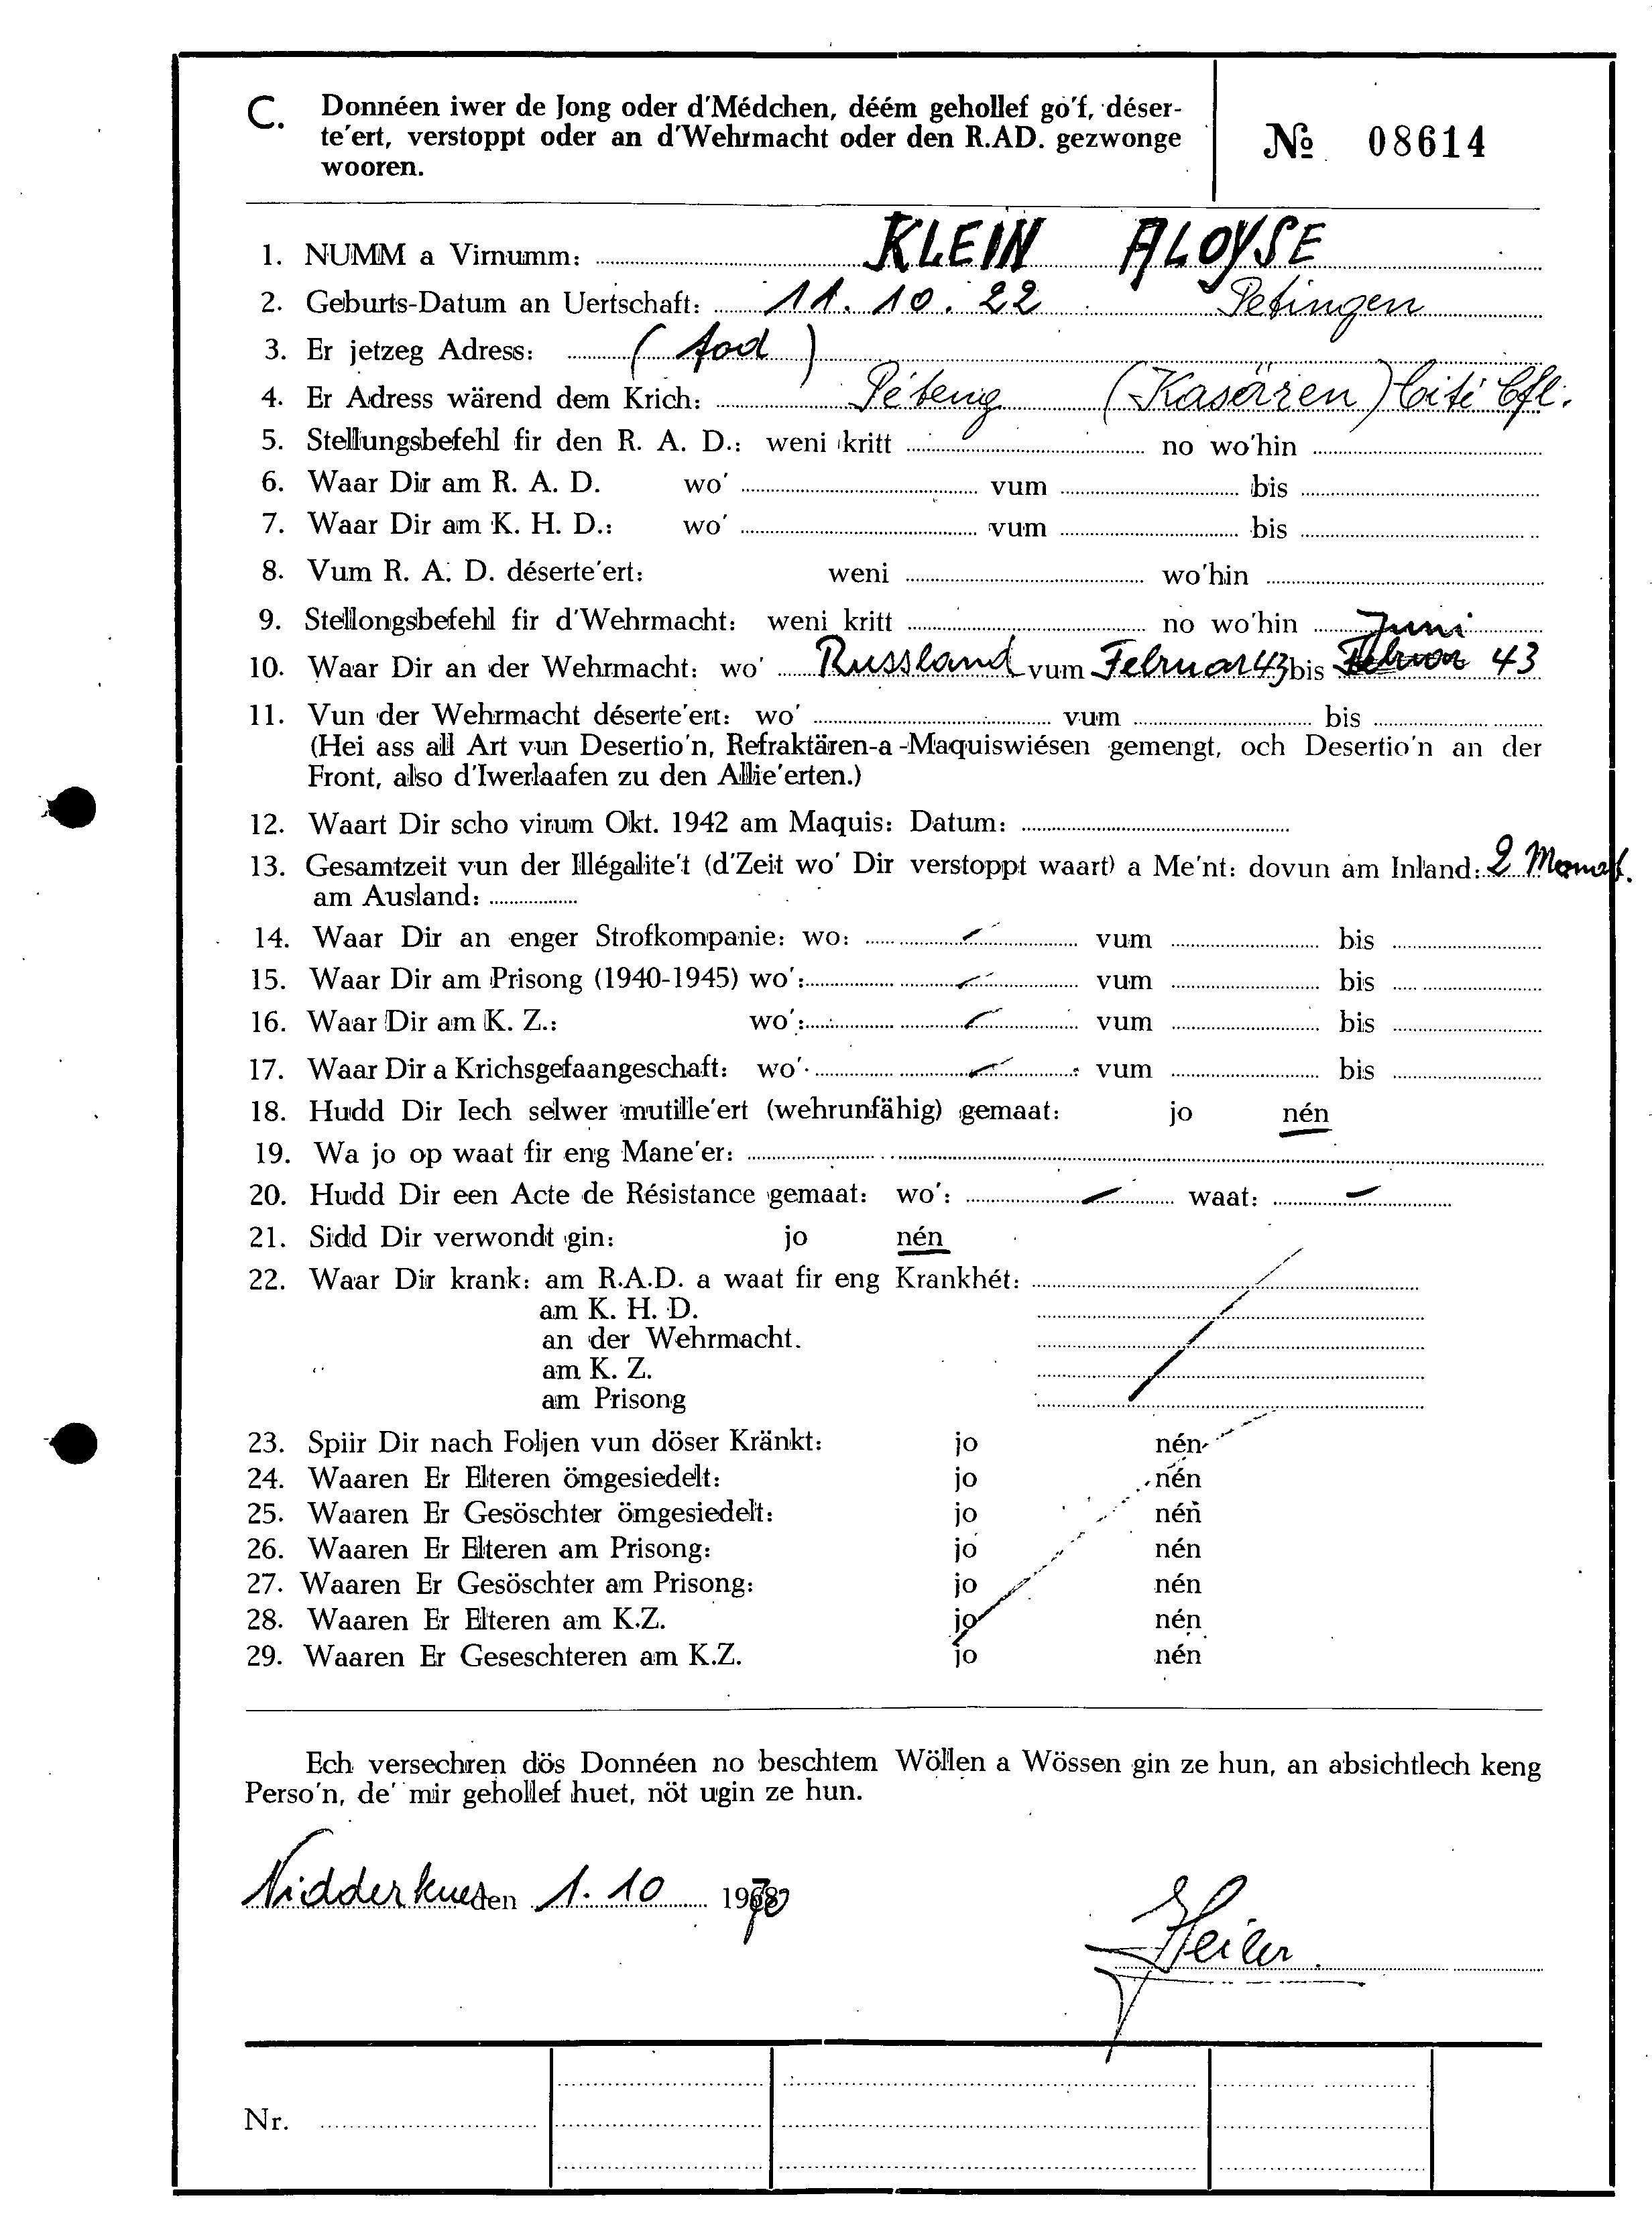 C. Donnéen iwer de Jong oder d'Médchen, déém gehollef go'f, déser-
te'ert, verstoppt oder an d'Wehrmacht oder den R.AD. gezwonge
wooren.
№ 08614
1. NUMM a Virnumm: KLEIN ALOYSE
2. Geburts-Datum an Uertschaft: 11.10.22 Petingen
3. Er jetzeg Adress: (tod)
4. Er Adress wärend dem Krich: Péteng (Kasären) Cité Cfl.
5. Stellungsbefehl fir den R. A. D.: weni kritt no wo'hin
6. Waar Dir am R. A. D. wo' vum bis
7. Waar Dir am K. H. D.: wo' vum bis
8. Vum R. A. D. déserte'ert: weni wo'hin
9. Stellongsbefehl fir d'Wehrmacht: weni kritt no wo'hin
Juni
10. Waar Dir an der Wehrmacht: wo' Russland vum Februar 43 bis Februar 43
11. Vun der Wehrmacht déserte'ert: wo' vum bis
(Hei ass all Art vun Desertio'n, Refraktären-a-Maquiswiésen gemengt, och Desertio'n an der
Front, also d'Iwerlaafen zu den Allie'erten.)
12. Waart Dir scho virum Okt. 1942 am Maquis: Datum:
13. Gesamtzeit vun der Illégalite't (d'Zeit wo' Dir verstoppt waart) a Me'nt: dovun am Inland: 2 Monat.
am Ausland:
14. Waar Dir an enger Strofkompanie: wo: vum bis
15. Waar Dir am Prisong (1940-1945) wo': vum bis
16. Waar Dir am K. Z.: wo': vum bis
17. Waar Dir a Krichsgefaangeschaft: wo' vum bis
18. Hudd Dir Iech selwer mutille'ert (wehrunfähig) gemaat: jo nén
19. Wa jo op waat fir eng Mane'er:
20. Hudd Dir een Acte de Résistance gemaat: wo': – waat: –
21. Sidd Dir verwondt gin: jo nén
22. Waar Dir krank: am R.A.D. a waat fir eng Krankhét:
am K. H. D.
an der Wehrmacht.
am K. Z.
am Prisong
23. Spiir Dir nach Foljen vun döser Kränkt: jo nén
24. Waaren Er Elteren ömgesiedelt: jo nén
25. Waaren Er Gesöschter ömgesiedelt: jo nén
26. Waaren Er Elteren am Prisong: jo nén
27. Waaren Er Gesöschter am Prisong: jo nén
28. Waaren Er Elteren am K.Z. jo nén
29. Waaren Er Geseschteren am K.Z. jo nén
Ech versechren dös Donnéen no beschtem Wöllen a Wössen gin ze hun, an absichtlech keng
Perso'n, de' mir gehollef huet, nöt ugin ze hun.
Nidderkuer den 1.10 1970
Nr.